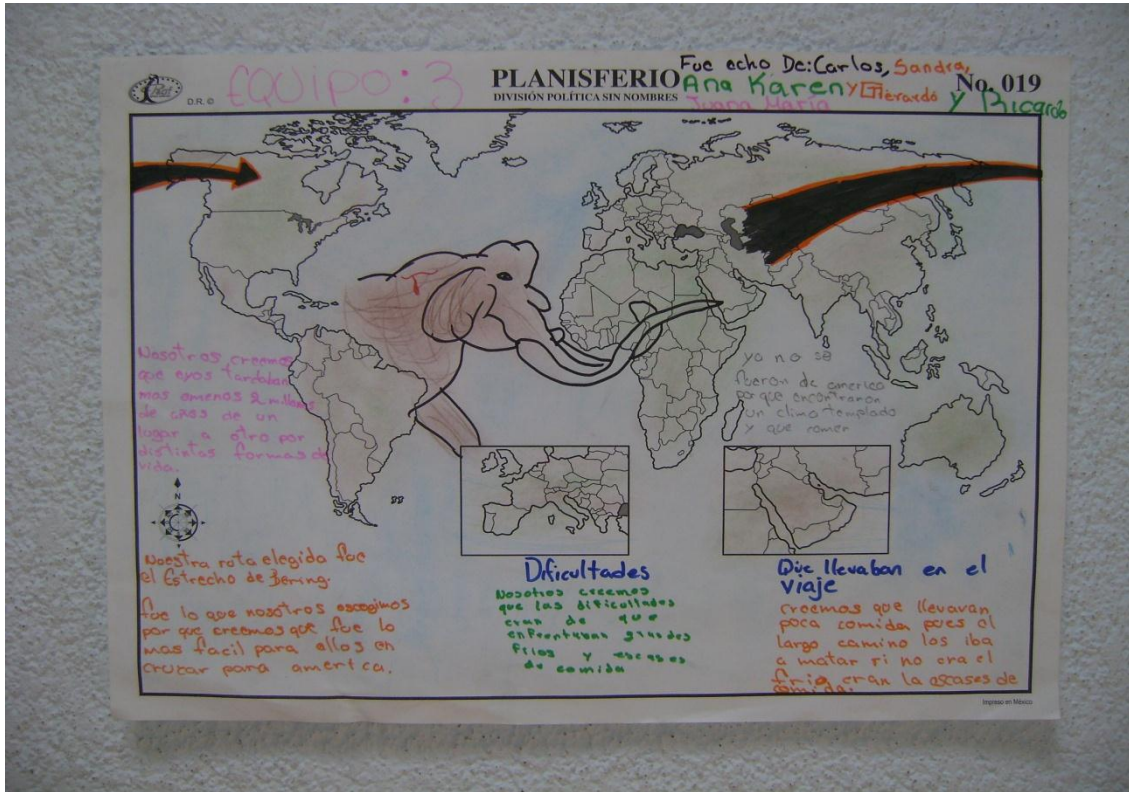 D.R. ©
EQUIPO: 3
PLANISFERIO
DIVISIÓN POLÍTICA SIN NOMBRES
Fue echo De: Carlos, Sandra,
Ana Karen y Gerardo
Juana María
y Ricardo
No. 019
Nosotros creemos
que eyos tardaban
mas amenos 2 millones
de años de un
lugar a otro por
distintas formas de
vida.
ya no se
fueron de america
porque encontraron
un clima templado
y que comer
N
Nuestra ruta elegida fue
el Estrecho de Bering.
fue lo que nosotros escogimos
por que creemos que fue lo
mas facil para ellos en
cruzar para america.
Dificultades
Nosotros creemos
que las dificultades
eran de que
enfrentaban grandes
frios y escases
de comida
Que llevaban en el
viaje
creemos que llevavan
poca comida pues el
largo camino los iba
a matar si no era el
frio eran la escases de
comida.
Impreso en México